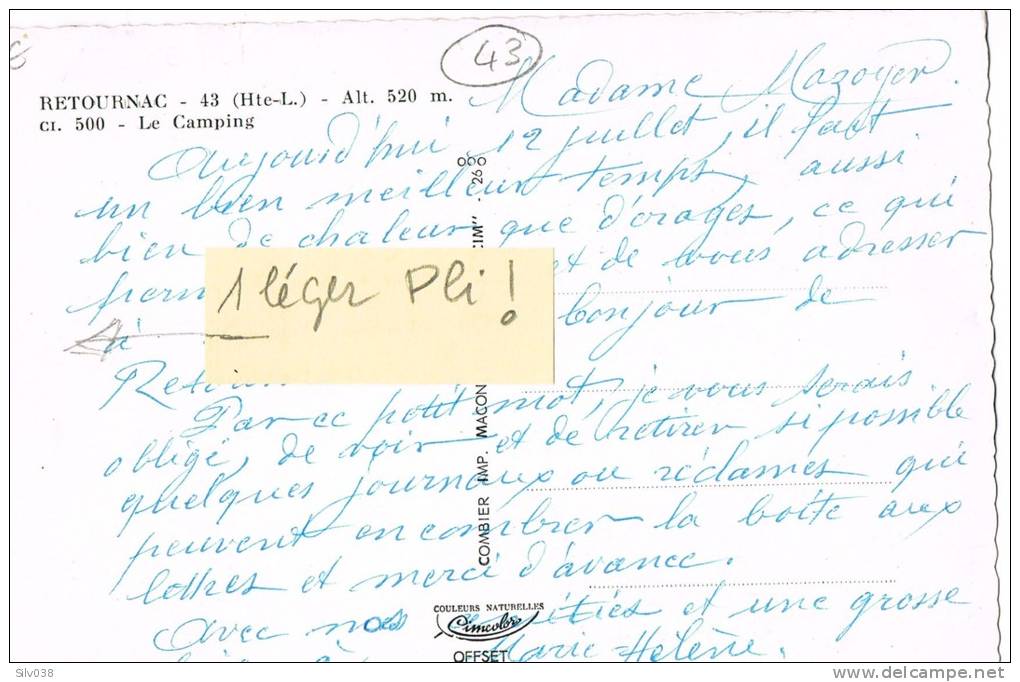 43
RETOURNAC - 43 (Hte-L.) - Alt. 520 m.
CI. 500 - Le Camping
Madame Mazoyer.
Aujourd'hui 12 juillet, il fait
un bien meilleur temps, aussi
bien de chaleur que d'orages, ce qui
et de vous adresser
à bonjour de
1 léger Pli !
Par ce petit mot, je vous serais
obligé, de voir et de retirer si possible
quelques journaux ou réclames qui
peuvent encombrer la boîte aux
lettres et merci d'avance.
Avec nos amitiés et une grosse
Marie-Helène.
COMBIER IMP. MACON
CIM" - 26
COULEURS NATURELLES
Cimcolor
OFFSET
Silvo38
delcampe.net